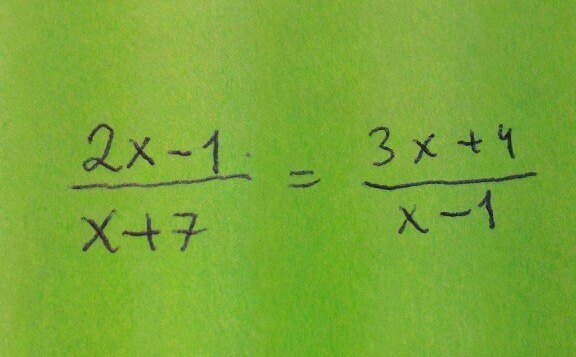 (2x-1)/(x+7) = (3x+4)/(x-1)